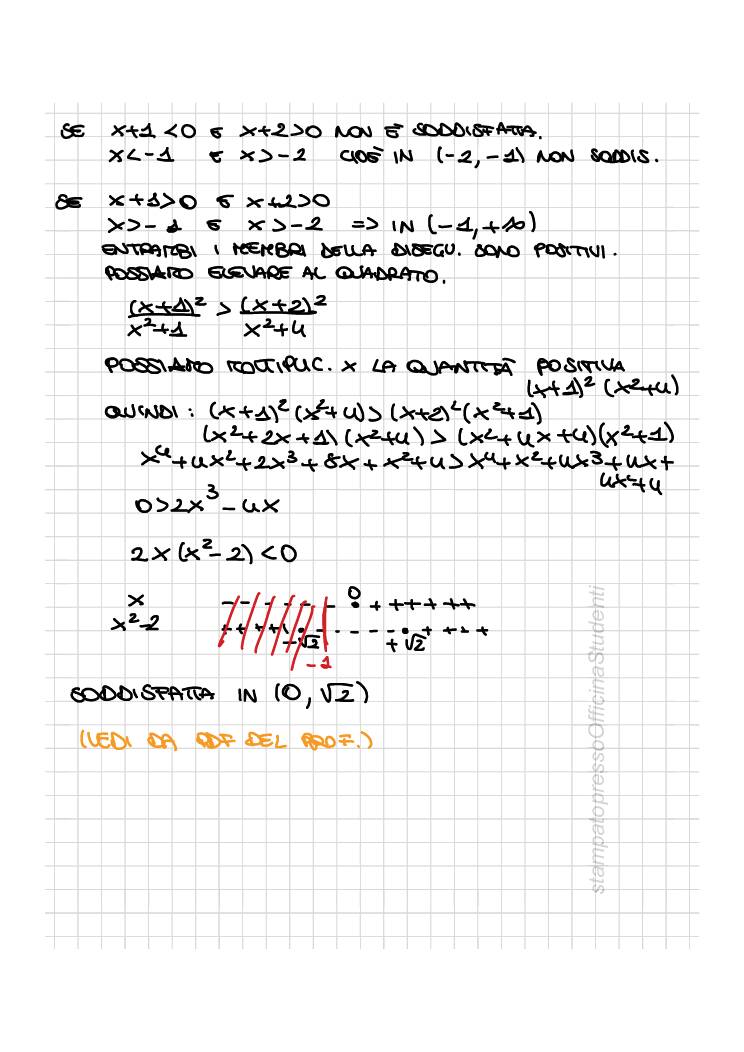 SE x+1 <0 E x+2>0 NON È SODDISFATTA.
x<-1 E x>-2 CIOÈ IN (-2, -1) NON SODDIS.
SE x+1>0 E x+2>0
x>-1 E x>-2 => IN (-1,+∞)
ENTRAMBI I MEMBRI DELLA DISEGU. SONO POSITIVI.
POSSIAMO ELEVARE AL QUADRATO.
(x+1)²/(x²+1) > (x+2)²/(x²+4)
POSSIAMO MOLTIPLIC. x LA QUANTITÀ POSITIVA
(x+1)² (x²+4)
QUINDI: (x+1)² (x²+4) > (x+2)² (x²+1)
(x²+2x+1) (x²+4) > (x²+4x+4)(x²+1)
x⁴+4x²+2x³+8x+x²+4>x⁴+x²+4x³+4x+
4x²+4
0>2x³-4x
2x(x²-2)<0
0
x - - - - - - • + + + + + + +
x²-2 + + + + • - - - - • + + + + +
-√2 +√2
-1
SODDISFATTA IN (0, √2)
(VEDI DA PDF DEL PROF.)
stampatopressoOfficinaStudenti